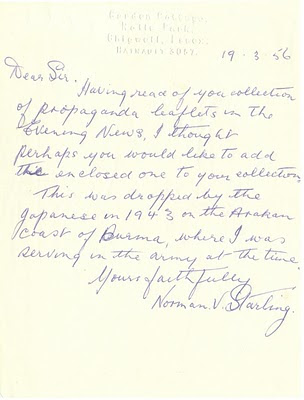 Garden Cottage,
Rolls Park,
Chigwell, Essex.
Hainault 3067.
19-3-56
Dear Sir.
Having read of you collection
of propaganda leaflets in the
Evening News, I thought
perhaps you would like to add
the enclosed one to your collection
This was dropped by the
Japanese in 1943 on the Arakan
coast of Burma, where I was
serving in the army at the time
Yours faithfully
Norman. V. Starling.